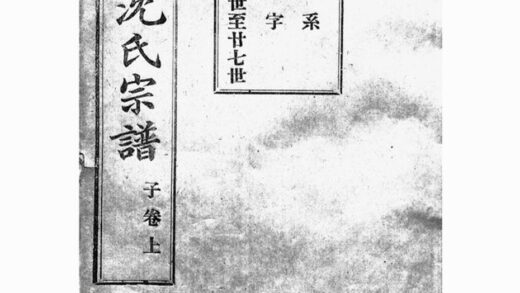 系
字
世至廿七世
沈氏宗譜
子卷上